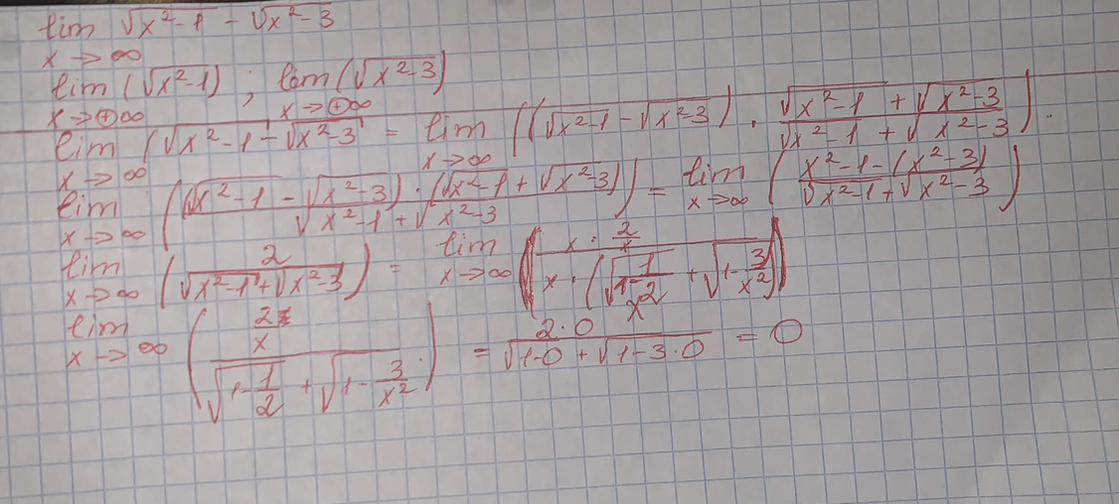 lim √x²-1 - √x²-3
x → ∞
lim (√x²-1) ; lim (√x²-3)
x → ⊕∞ x → ⊕∞
lim (√x²-1 - √x²-3 = lim ((√x²-1 - √x²-3) · (√x²-1 + √x²-3)/(√x²-1 + √x²-3)).
x → ∞ x → ∞
lim ((√x²-1 - √x²-3) · (√x²-1 + √x²-3))/(√x²-1 + √x²-3)) = lim (x²-1-(x²-3)/(√x²-1 + √x²-3))
x → ∞ x → ∞
lim (2/(√x²-1 + √x²-3)) = lim ((x · 2/x)/(x · (√1-1/x² + √1-3/x²)))
x → ∞ x → ∞
lim ((2/x)/(√1-1/2 + √1-3/x²)) = 2·0/(√1-0 + √1-3·0) = 0
x → ∞